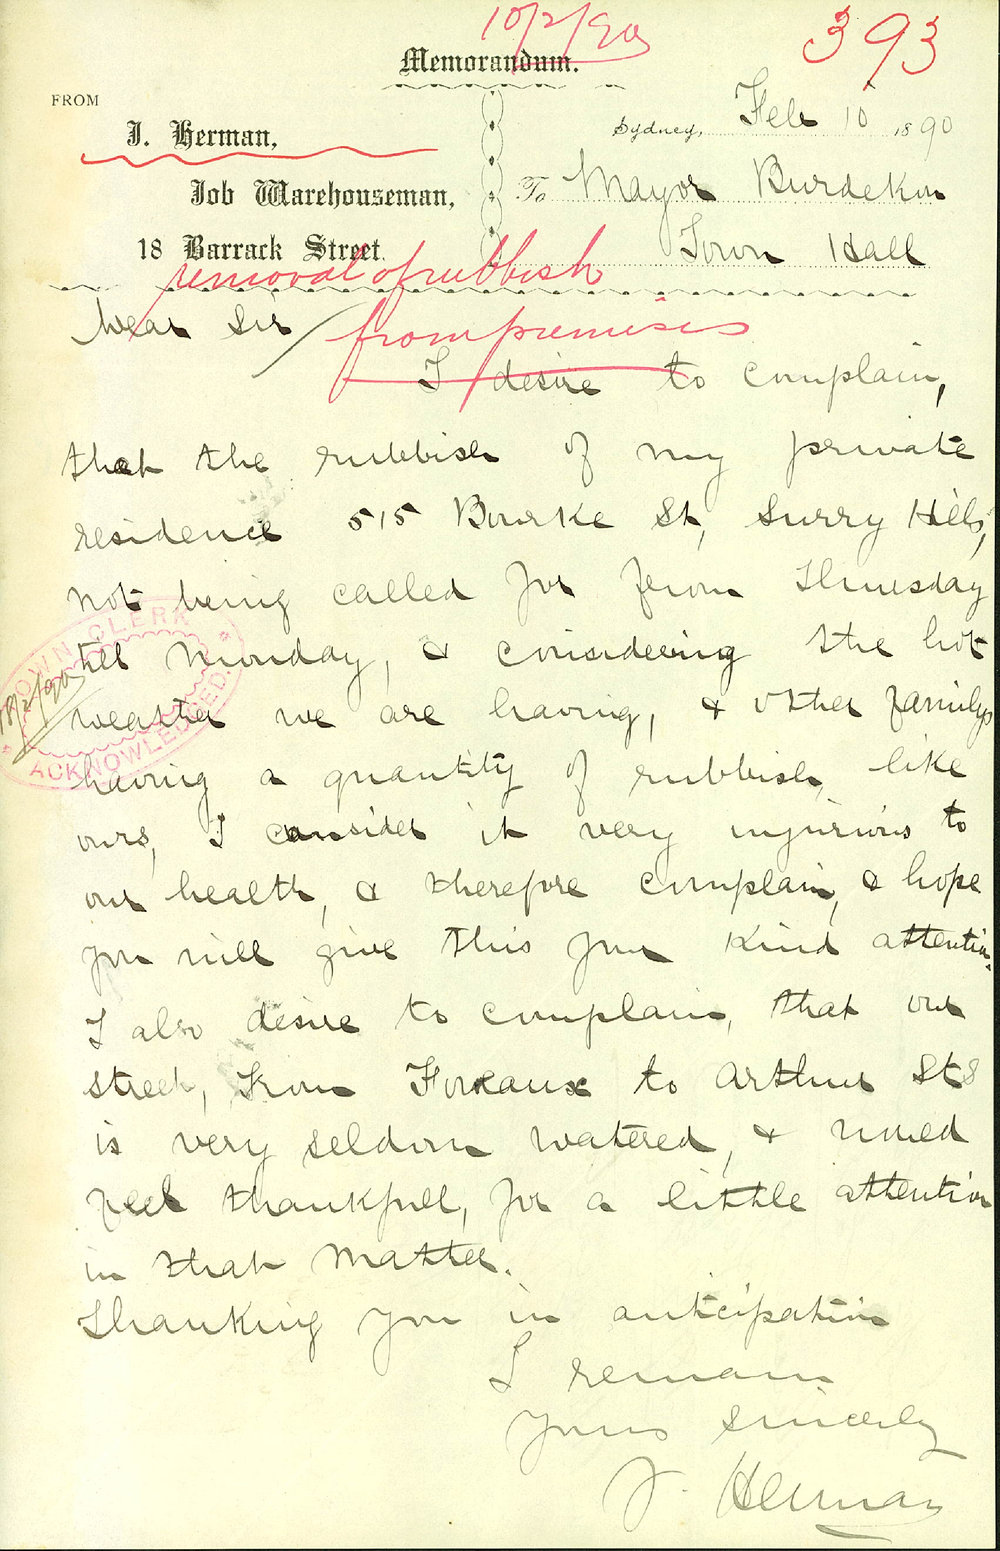 10/2/90
393
Memorandum.
FROM
J. Herman,
Job Warehouseman,
18 Barrack Street.
Sydney, Feb 10 1890
To Mayor Burdekin
Town Hall
removal of rubbish
from premises
Dear Sir
I desire to complain,
that the rubbish of my private
residence 515 Bourke St, Surry Hills,
not being called for from Thursday
till Monday, & considering the hot
weather we are having, & other familys
having a quantity of rubbish, like
ours, I consider it very injurious to
our health, & therefore complain, & hope
you will give this your kind attention.
I also desire to complain, that our
street, from Foveaux to Arthur Sts
is very seldom watered, & would
feel thankfull, for a little attention
in that matter.
Thanking you in anticipation
I remain
Yours sincerely
J. Herman
TOWN CLERK
18/2/90
ACKNOWLEDGED.